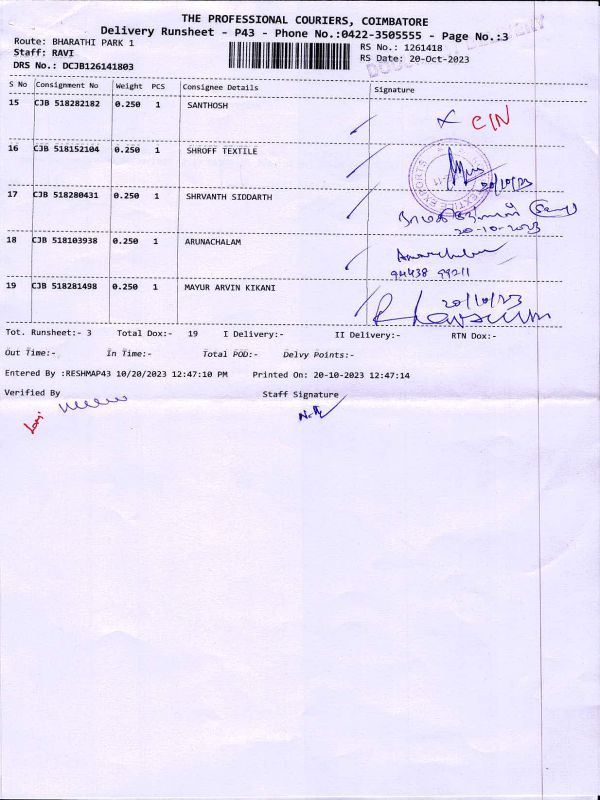 THE PROFESSIONAL COURIERS, COIMBATORE
Delivery Runsheet - P43 - Phone No.:0422-3505555 - Page No.:3
Route: BHARATHI PARK 1
RS No.: 1261418
Staff: RAVI
RS Date: 20-Oct-2023
DRS No.: DCJB126141803
S No Consignment No Weight PCS Consignee Details Signature
15 CJB 518282182 0.250 1 SANTHOSH
16 CJB 518152104 0.250 1 SHROFF TEXTILE
20/10/23
17 CJB 518280431 0.250 1 SHRVANTH SIDDARTH
20-10-2023
18 CJB 518103938 0.250 1 ARUNACHALAM
Arunachalam
94438 99211
19 CJB 518281498 0.250 1 MAYUR ARVIN KIKANI
20/10/23
Tot. Runsheet:- 3 Total Dox:- 19 I Delivery:- II Delivery:- RTN Dox:-
Out Time:- In Time:- Total POD:- Delvy Points:-
Entered By :RESHMAP43 10/20/2023 12:47:10 PM Printed On: 20-10-2023 12:47:14
Verified By Staff Signature